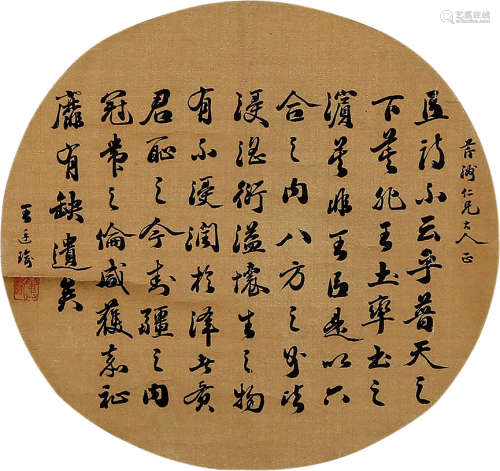 仁兄大人正
且詩不云乎普天之
下莫非王土率土之
濱莫非王臣是以六
合之內八方之外
浸淫衍溢懷生之物
有不浸潤於澤者賢
君恥之今封疆之內
冠帶之倫咸獲嘉祉
靡有缺遺矣
王廷